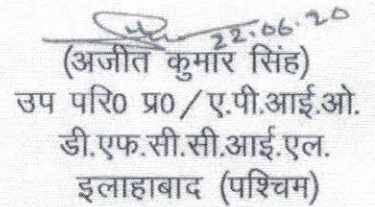 22.06.20
(अजीत कुमार सिंह)
उप परि0 प्र0/ए.पी.आई.ओ.
डी.एफ.सी.सी.आई.एल.
इलाहाबाद (पश्चिम)